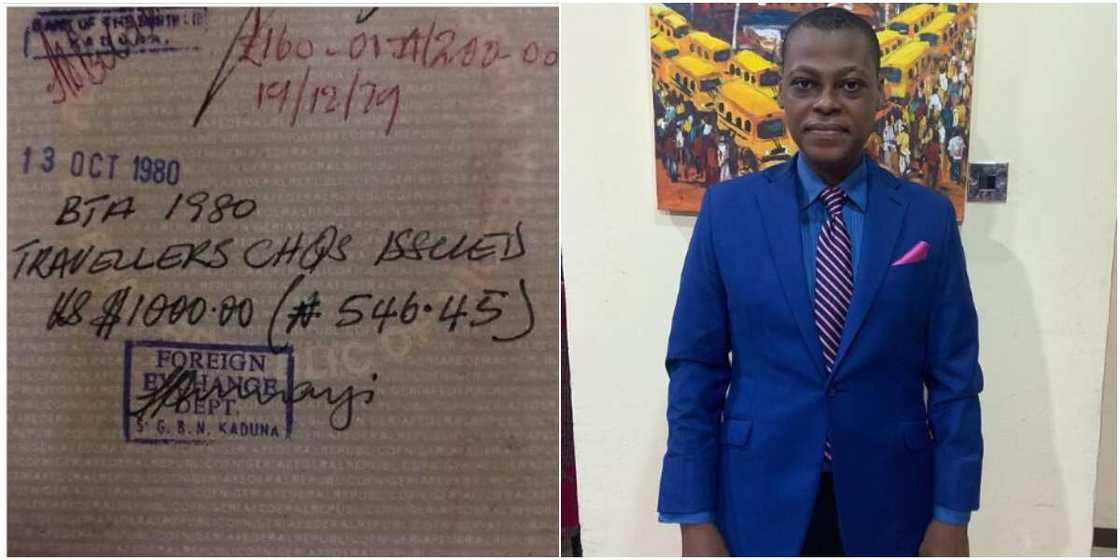 BANK OF THE NORTH LTD
KADUNA.
£160-01-A/200-00
19/12/79
13 OCT 1980
BTA 1980
TRAVELLERS CHQS ISSUED
US $1000.00 (₦ 546.45)
FOREIGN
EXCHANGE
DEPT.
S. G. B. N. KADUNA